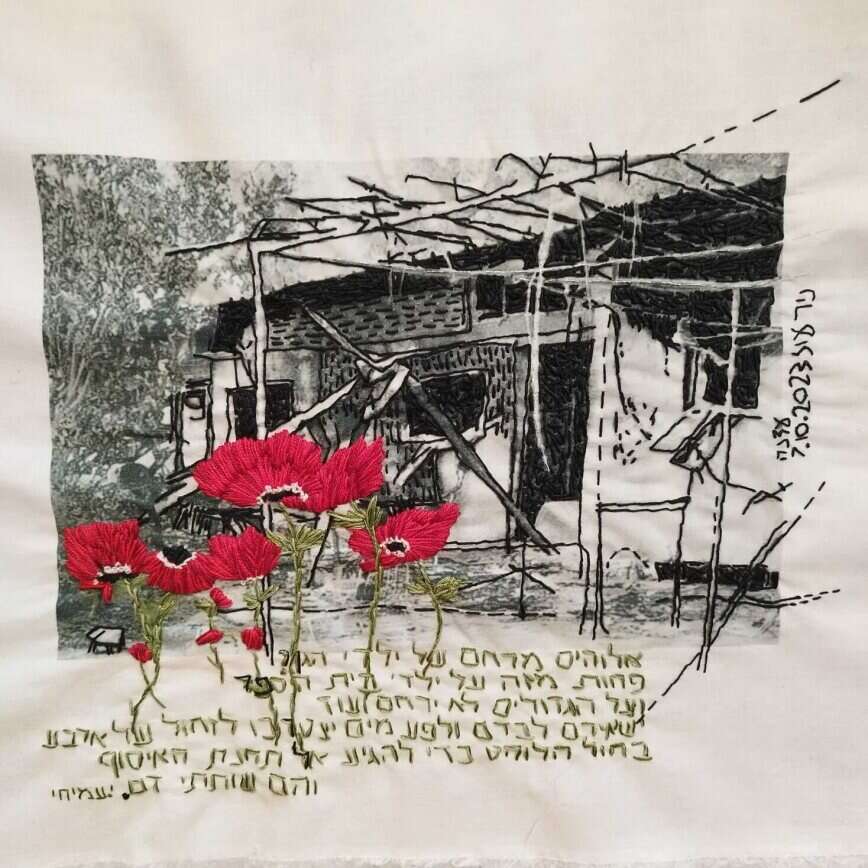 ניר עוז 7.10.2023
אלוהים מרחם על ילדי הגן
פחות מזה על ילדי בית הספר
ועל הגדולים לא ירחם עוד
ישאירם לבדם ולפעמים יצטרכו לזחול על ארבע
בחול הלוהט כדי להגיע אל תחנת האיסוף
והם שותתי דם. יעמיחי